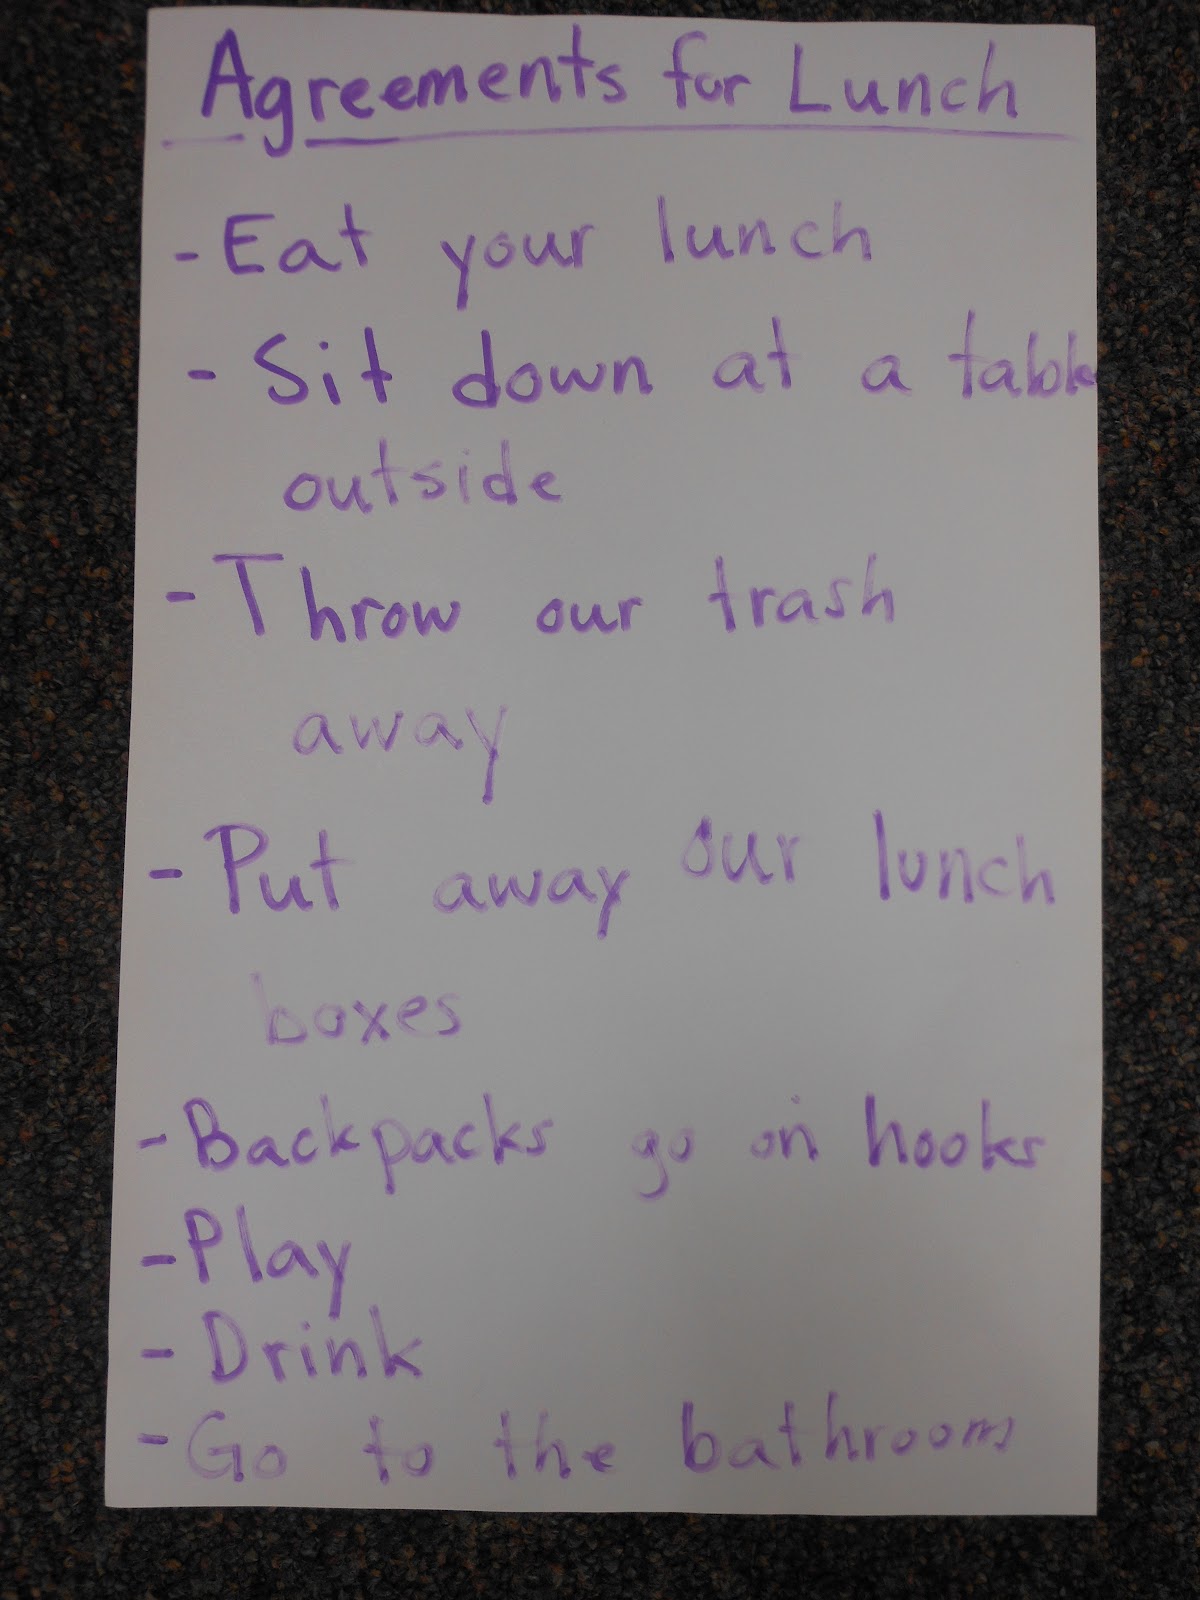 Agreements for Lunch
- Eat your lunch
- Sit down at a table
outside
- Throw our trash
away
- Put away our lunch
boxes
- Backpacks go on hooks
- Play
- Drink
- Go to the bathroom